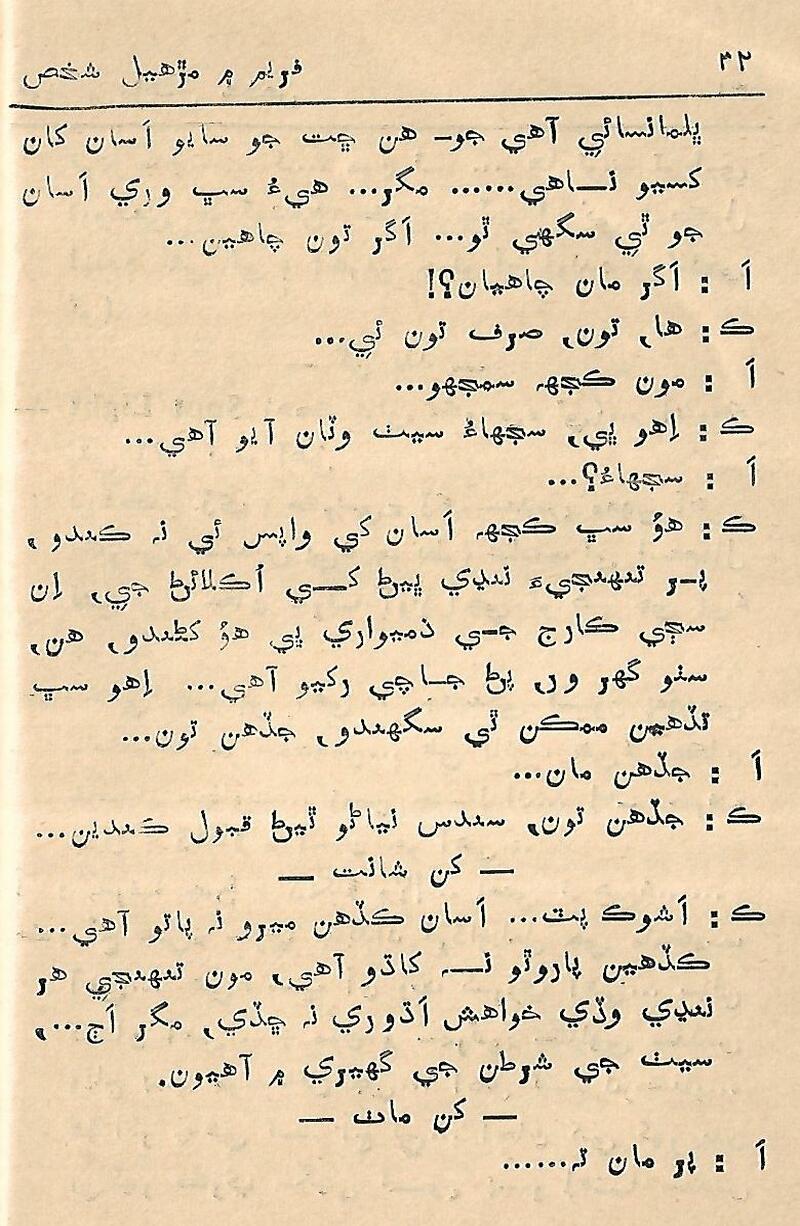 ۳۲
فريم ۾ مڙهيل شخص
ڀلمانسائي آهي جو- هن ڇت جو سايو اَسان کان
کسيو نــاهي...... مگر... هيءُ سڀ وري اَسان
جو ٿي سگهي ٿو... اَگر تون چاهين...
اَ : اَگر مان چاهيان؟!
ڪ : ها، تون، صرف تون ئي...
اَ : مون ڪجهه سمجهو...
ڪ : اِهو ڀي، سڃهاءُ سيٺ وٽان آيو آهي...
اَ : سڃهاءُ؟...
ڪ : هوُ سڀ ڪجهه اَسان کي واپس ئي نہ ڪندو،
پـر تنهنجيءَ ننڍي ڀيڻ کــي اُڪلائڻ جي، اِن
سڄي ڪارج جـي ذميواري ڀي هوُ کڻندو، هن،
سٺو گهر ور، پڻ جـاچي رکيو آهي... اِهو سڀ
تڏهين ممڪن ٿي سگهندو، جڏهن تون...
اَ : جڏهن مان...
ڪ : جڏهن تون، سندس نياڻو ٿيڻ قبول ڪندين...
— کن شانت —
ڪ : اَشوڪ پٽ... اَسان ڪڏهن ميرو نہ پاتو آهي...
ڪڏهين پاروٿو نــہ کاڌو آهي، مون تنهنجي هر
ننڍي وڏي خواهش اَڌوري نہ ڇڏي، مگر اَڄ...،
سيٺ جي شرطن جي گهيري ۾ آهيون.
— کن ماٺ —
اَ : پر مان تہ......